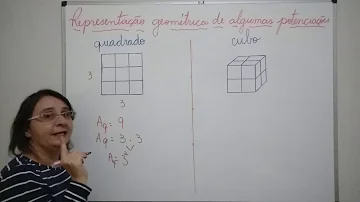 Representação geométrica de algumas potenciações
quadrado
cubo
3
3
Aq = 9
Aq = 3 . 3
A = 3²